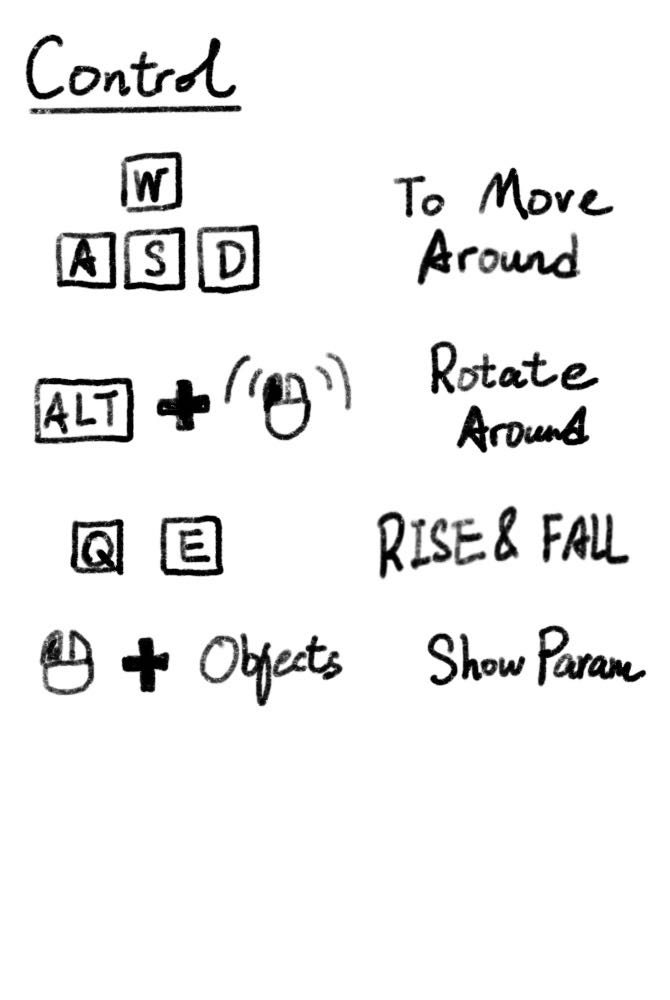 Control
W
A S D
To Move
Around
ALT +
Rotate
Around
Q E
RISE & FALL
+ Objects
Show Param